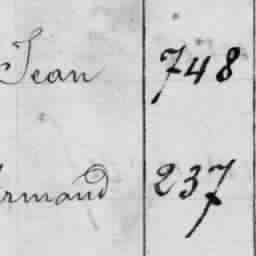 Jean 748
rmand 237